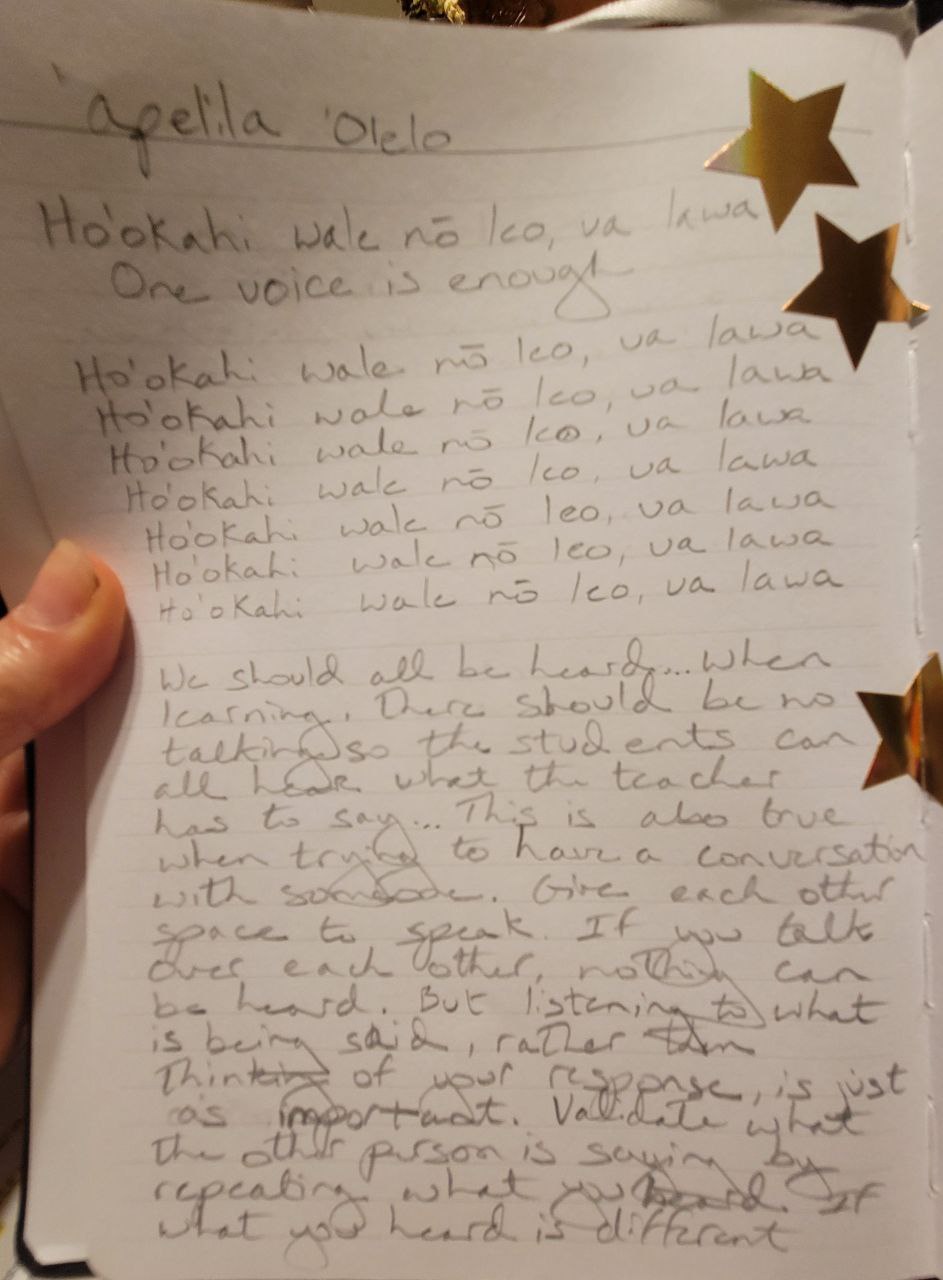 'apelila 'Olelo
Ho'okahi wale nō leo, ua lawa
One voice is enough
Ho'okahi wale nō leo, ua lawa
Ho'okahi wale nō leo, ua lawa
Ho'okahi wale nō leo, ua lawa
Ho'okahi wale nō leo, ua lawa
Ho'okahi wale nō leo, ua lawa
Ho'okahi wale nō leo, ua lawa
Ho'okahi wale nō leo, ua lawa
We should all be heard... when
learning, There should be no
talking so the students can
all hear what the teacher
has to say... This is also true
when trying to have a conversation
with someone. Give each other
space to speak. If you talk
over each other, nothing can
be heard. But listening to what
is being said, rather than
thinking of your response, is just
as important. Validate what
the other person is saying by
repeating what you heard. If
what you heard is different